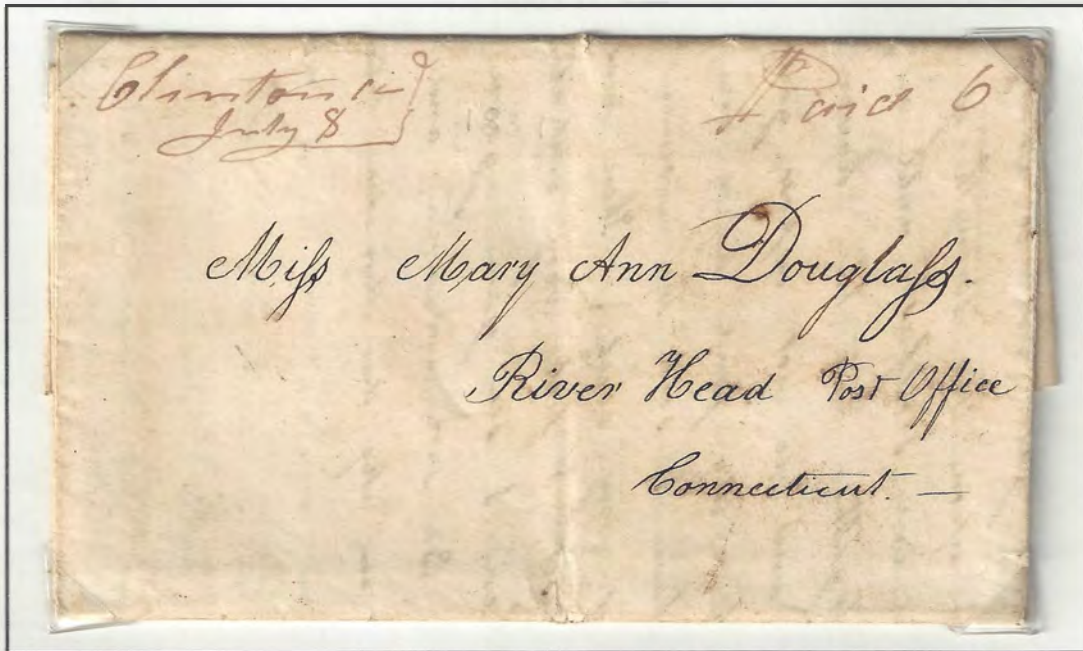 Clinton Ct
July 8
Paid 6
Miſs Mary Ann Douglaſs.
River Head Post Office
Connecticut. —